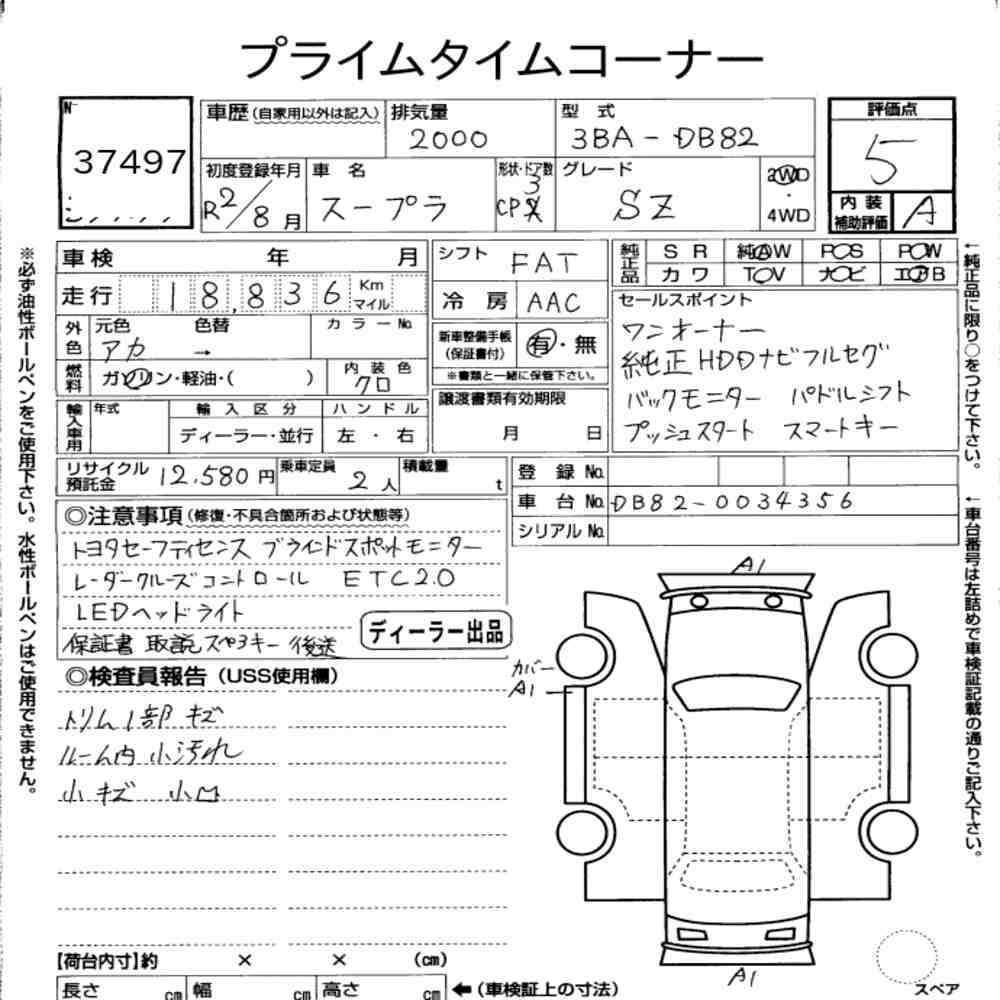 プライムタイムコーナー
№
37497
車歴(自家用以外は記入)
排気量
2000
型 式
3BA-DB82
評価点
5
初度登録年月
R2/8月
車 名
スープラ
形状・ドア数
3
CP
グレード
SZ
2WD
・
4WD
内装
補助評価
A
車検 年 月
走行 18,836 Km
マイル
外色
元色 色替
アカ →
カラーNo.
燃料
ガソリン・軽油・( )
内装色
クロ
輸入車用
年式
輸入区分
ディーラー・並行
ハンドル
左・右
シフト
FAT
冷房
AAC
新車整備手帳
(保証書付)
有・無
※書類と一緒に保管下さい。
譲渡書類有効期限
月 日
純正品
SR 純AW POS POW
カワ TOV ナビ エアB
セールスポイント
ワンオーナー
純正HDDナビフルセグ
バックモニター パドルシフト
プッシュスタート スマートキー
リサイクル
預託金
12,580円
乗車定員
2人
積載量
t
登録No.
車台No. DB82-0034356
シリアルNo.
◎注意事項(修復・不具合箇所および状態等)
トヨタセーフティセンス ブラインドスポットモニター
レーダークルーズコントロール ETC2.0
LEDヘッドライト
保証書 取説 スペアキー 後送
ディーラー出品
◎検査員報告(USS使用欄)
トリム1部キズ
ルーム内 小汚れ
小キズ 小凹
A1
カバー
A1
A1
スペア
【荷台内寸】約 × × (cm)
長さ cm 幅 cm 高さ cm ←(車検証上の寸法)
※必ず油性ボールペンをご使用下さい。水性ボールペンはご使用できません。
←純正品に限り○をつけて下さい。
←車台番号は左詰めで車検証記載の通りご記入下さい。